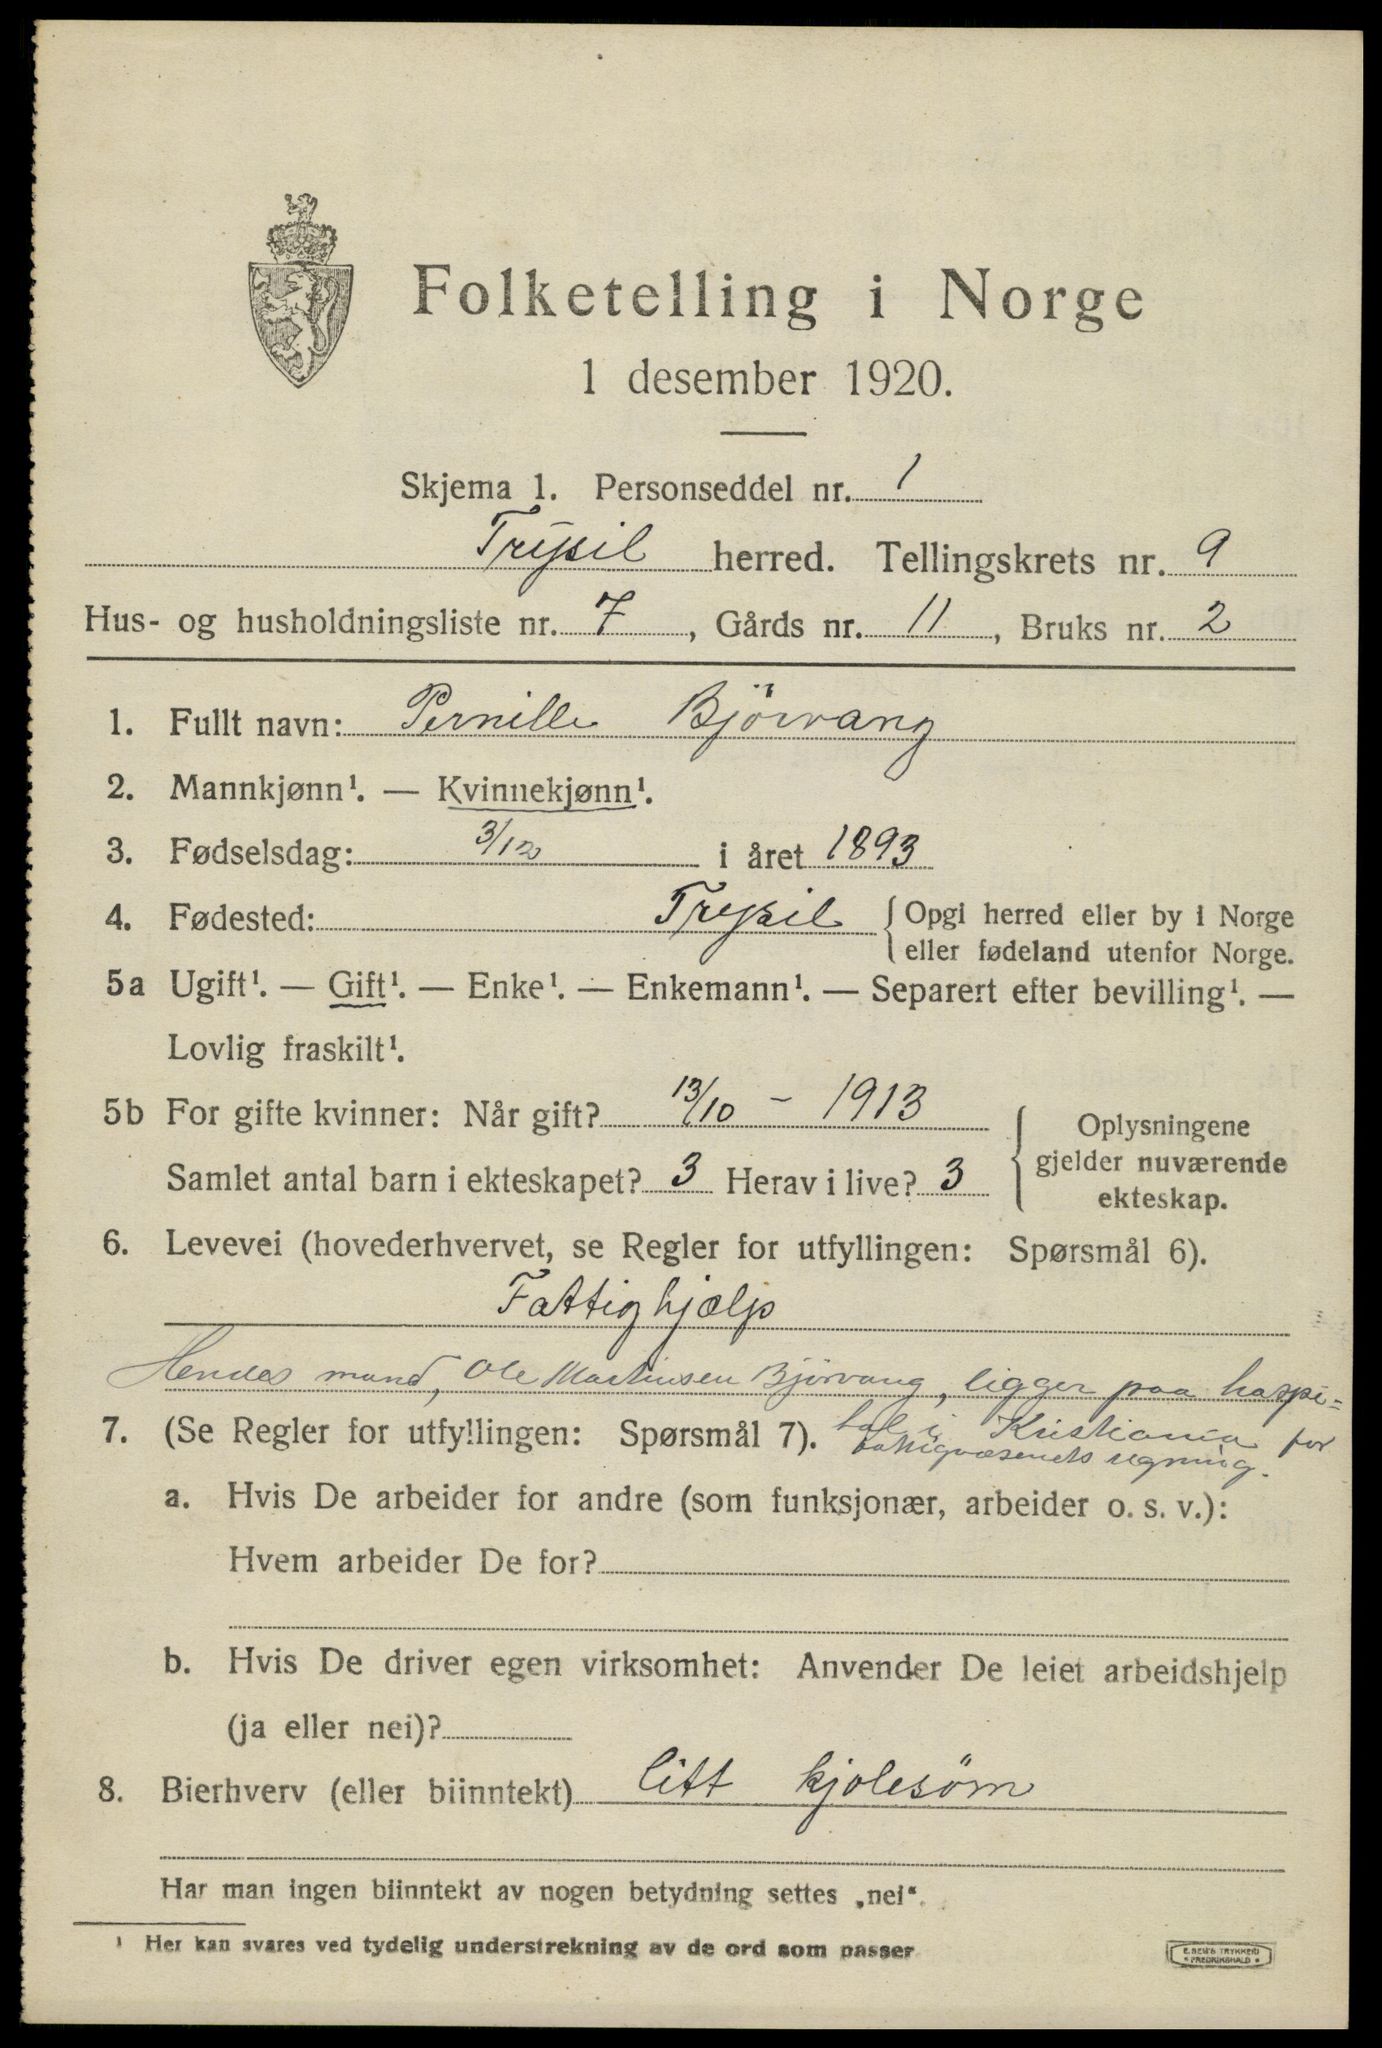 Folketelling i Norge
1 desember 1920.
Skjema 1. Personseddel nr. 1
Trysil herred. Tellingskrets nr. 9
Hus- og husholdningsliste nr. 7, Gårds nr. 11, Bruks nr. 2
1. Fullt navn: Pernille Björvang
2. Mannkjønn¹. — Kvinnekjønn¹.
3. Fødselsdag: 3/12 i året 1893
4. Fødested: Trysil { Opgi herred eller by i Norge
eller fødeland utenfor Norge.
5a Ugift¹. — Gift¹. — Enke¹. — Enkemann¹. — Separert efter bevilling¹. —
Lovlig fraskilt¹.
5b For gifte kvinner: Når gift? 13/10 - 1913
Samlet antal barn i ekteskapet? 3 Herav i live? 3
Oplysningene
gjelder nuværende
ekteskap.
6. Levevei (hovederhvervet, se Regler for utfyllingen: Spørsmål 6).
Fattighjælp
Hendes mand, Ole Martinsen Björvang, ligger paa hospi=
7. (Se Regler for utfyllingen: Spørsmål 7). tal i Kristiania for
fattigvæsenets regning.
a. Hvis De arbeider for andre (som funksjonær, arbeider o. s. v.):
Hvem arbeider De for?
b. Hvis De driver egen virksomhet: Anvender De leiet arbeidshjelp
(ja eller nei)?
8. Bierhverv (eller biinntekt) litt kjolesöm
Har man ingen biinntekt av nogen betydning settes „nei“.
¹ Her kan svares ved tydelig understrekning av de ord som passer
E. SEM'S TRYKKERI
* FREDRIKSHALD *